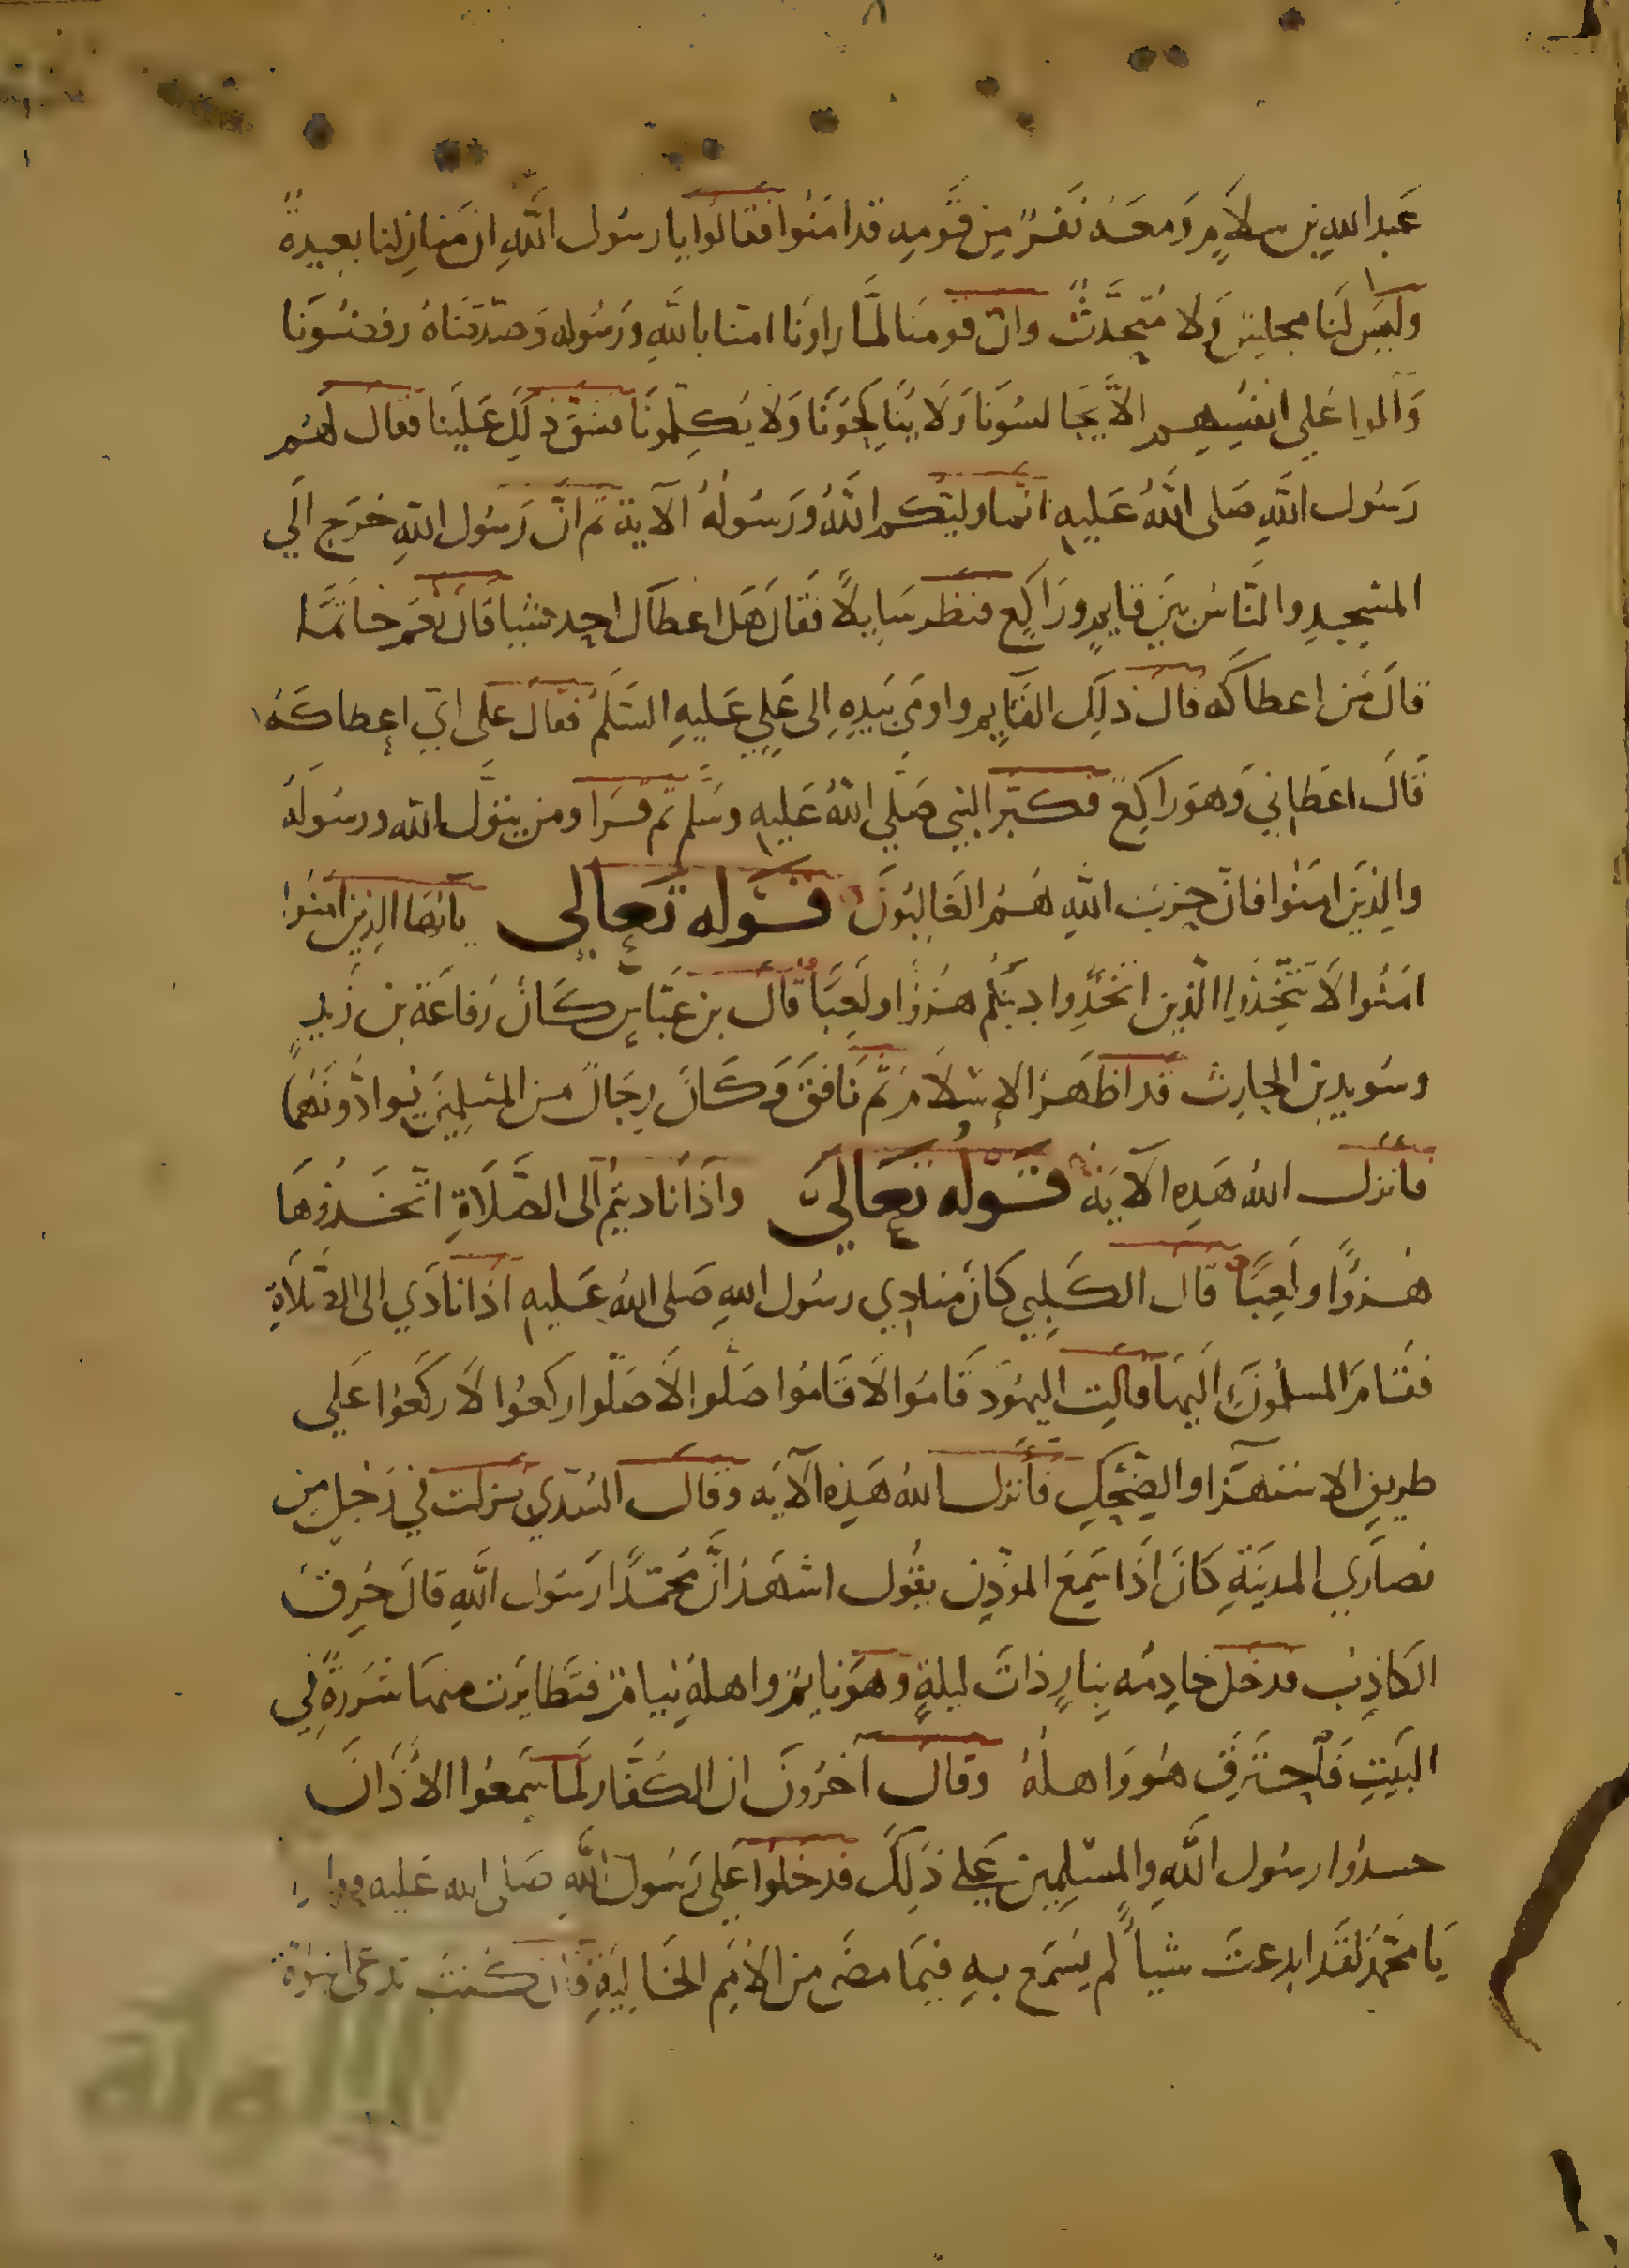 ٨
عَبد اللهِ بن سلَامٍ وَمعَهُ نَفَرٌ مِن قَومِهِ قد امَنُوا فقالوا يا رسُول اللَّهِ انَّ منازِلنا بعِيدةٌ
وليسَ لنَا مجلِسٌ وَلا مُتحَدَّثٌ وانّ قومنَا لمَّا راونَا امنا باللَّهِ ورَسُوله وَصدّقنَاهُ رفضُونَا
وَآلوا عَلى انفُسِهِم الاَّ يجَالسُونَا وَلَا يُنَاكِحُونَا وَلَا يُكلِّمونَا فشقَّ ذلِكَ عَلَينا فقال لَهُم
رَسُول اللَّهِ صَلى اللَّهُ عَليهِ انما وليّكم اللَّهُ وَرَسُولُهُ الآيةَ ثم انَّ رَسُول اللَّهِ خرَج الَي
المسْجِدِ والنَّاسُ بَينَ قايمٍ ورَاكِعٍ فنظر سَايلًا فَقالَ هَل اعْطاكَ احد شيا قَالَ نعَم خاتمًا
قالَ مَن اعطاكَه قال ذلِكَ القَايِم واومَى بَيدِهِ اِلى عَلِي عَليهِ السَّلَم فقال على ايّ اعطاكَهُ
قَالَ اعطَانِي وَهوَ راكِعٌ فكبّر النبي صَلّي اللَّهُ عَليهِ وسَّلم ثم قرَا ومن يتوَّل الله ورسُولَهُ
والذِينَ امَنُوا فانّ حِزبَ اللَّهِ هُمُ الغَالِبُونَ قَوله تعَالى يا ايُّها الذِين امنُوا
امَنُوا لَا تَتَّخِذُوا الذين اتخَذوا دِينَكُم هُزوًا ولَعِبًا قالَ بن عَبّاسٍ كَانَ رُفاعَة بن زَيدٍ
وسُويد بن الحارِث قد اظهَرَ الاِسْلَامَ ثمّ نَافقَ وَكَانَ رِجَالٌ من المسلِمِينَ يُوادُّونَهُمَا
فانزل اللهُ هَذِه الآيَة قَولُه تعَالَى واذَا نَاديتُم الَى الصَّلَاةِ اتّخَذُوهَا
هُزوًا ولَعِبًا قال الكَلبِي كانَ منادِي رسُول اللهِ صَلى اللهُ عَليهِ اذا نادَي الى الصَّلَاةِ
فقَامَ المسلمُونَ اليهَا قالت اليهُودَ قَامُوا لَا قَامُوا صَلُّوا لَا صَلّوا ركعُوا لَا ركَعُوا عَلى
طريقِ الاستهزا والضحْكِ فأنزل اللهُ هَذِهِ الآيَه وقال السُدّي نزلت في رَجُلٍ من
نصارَي المدينَةِ كانَ اذَا سَمِعَ المؤذِن يقُول اشهَدُ انَّ مُحمّدًا رَسُول اللَّهِ قالَ حُرِقَ
الكَاذِبُ فدخلَ خادِمُه بِنارٍ ذاتَ ليلةٍ وهوَ نايِمٌ واهلهُ نيامٌ فتَطايَرت منهَا شَرَرةٌ فِي
البَيتِ فَاحتَرقَ هُو وَاهلهُ وقال آخرُونَ ان الكُفَّار لمَا سَمِعُوا الاَذَانَ
حسدُوا رسُول اللَّهِ والمسْلِمِين عَلى ذَلِكَ فدخلوا عَلى رَسُول اللَّهِ صَلى الله عَليهِ
يَا محمّدُ لقَد ابدعتَ شيأً لم يُسمَع بهِ فيمَا مضَى من الاُمَمِ الخَاليَةِ فان كنتَ تدعى النبوّة